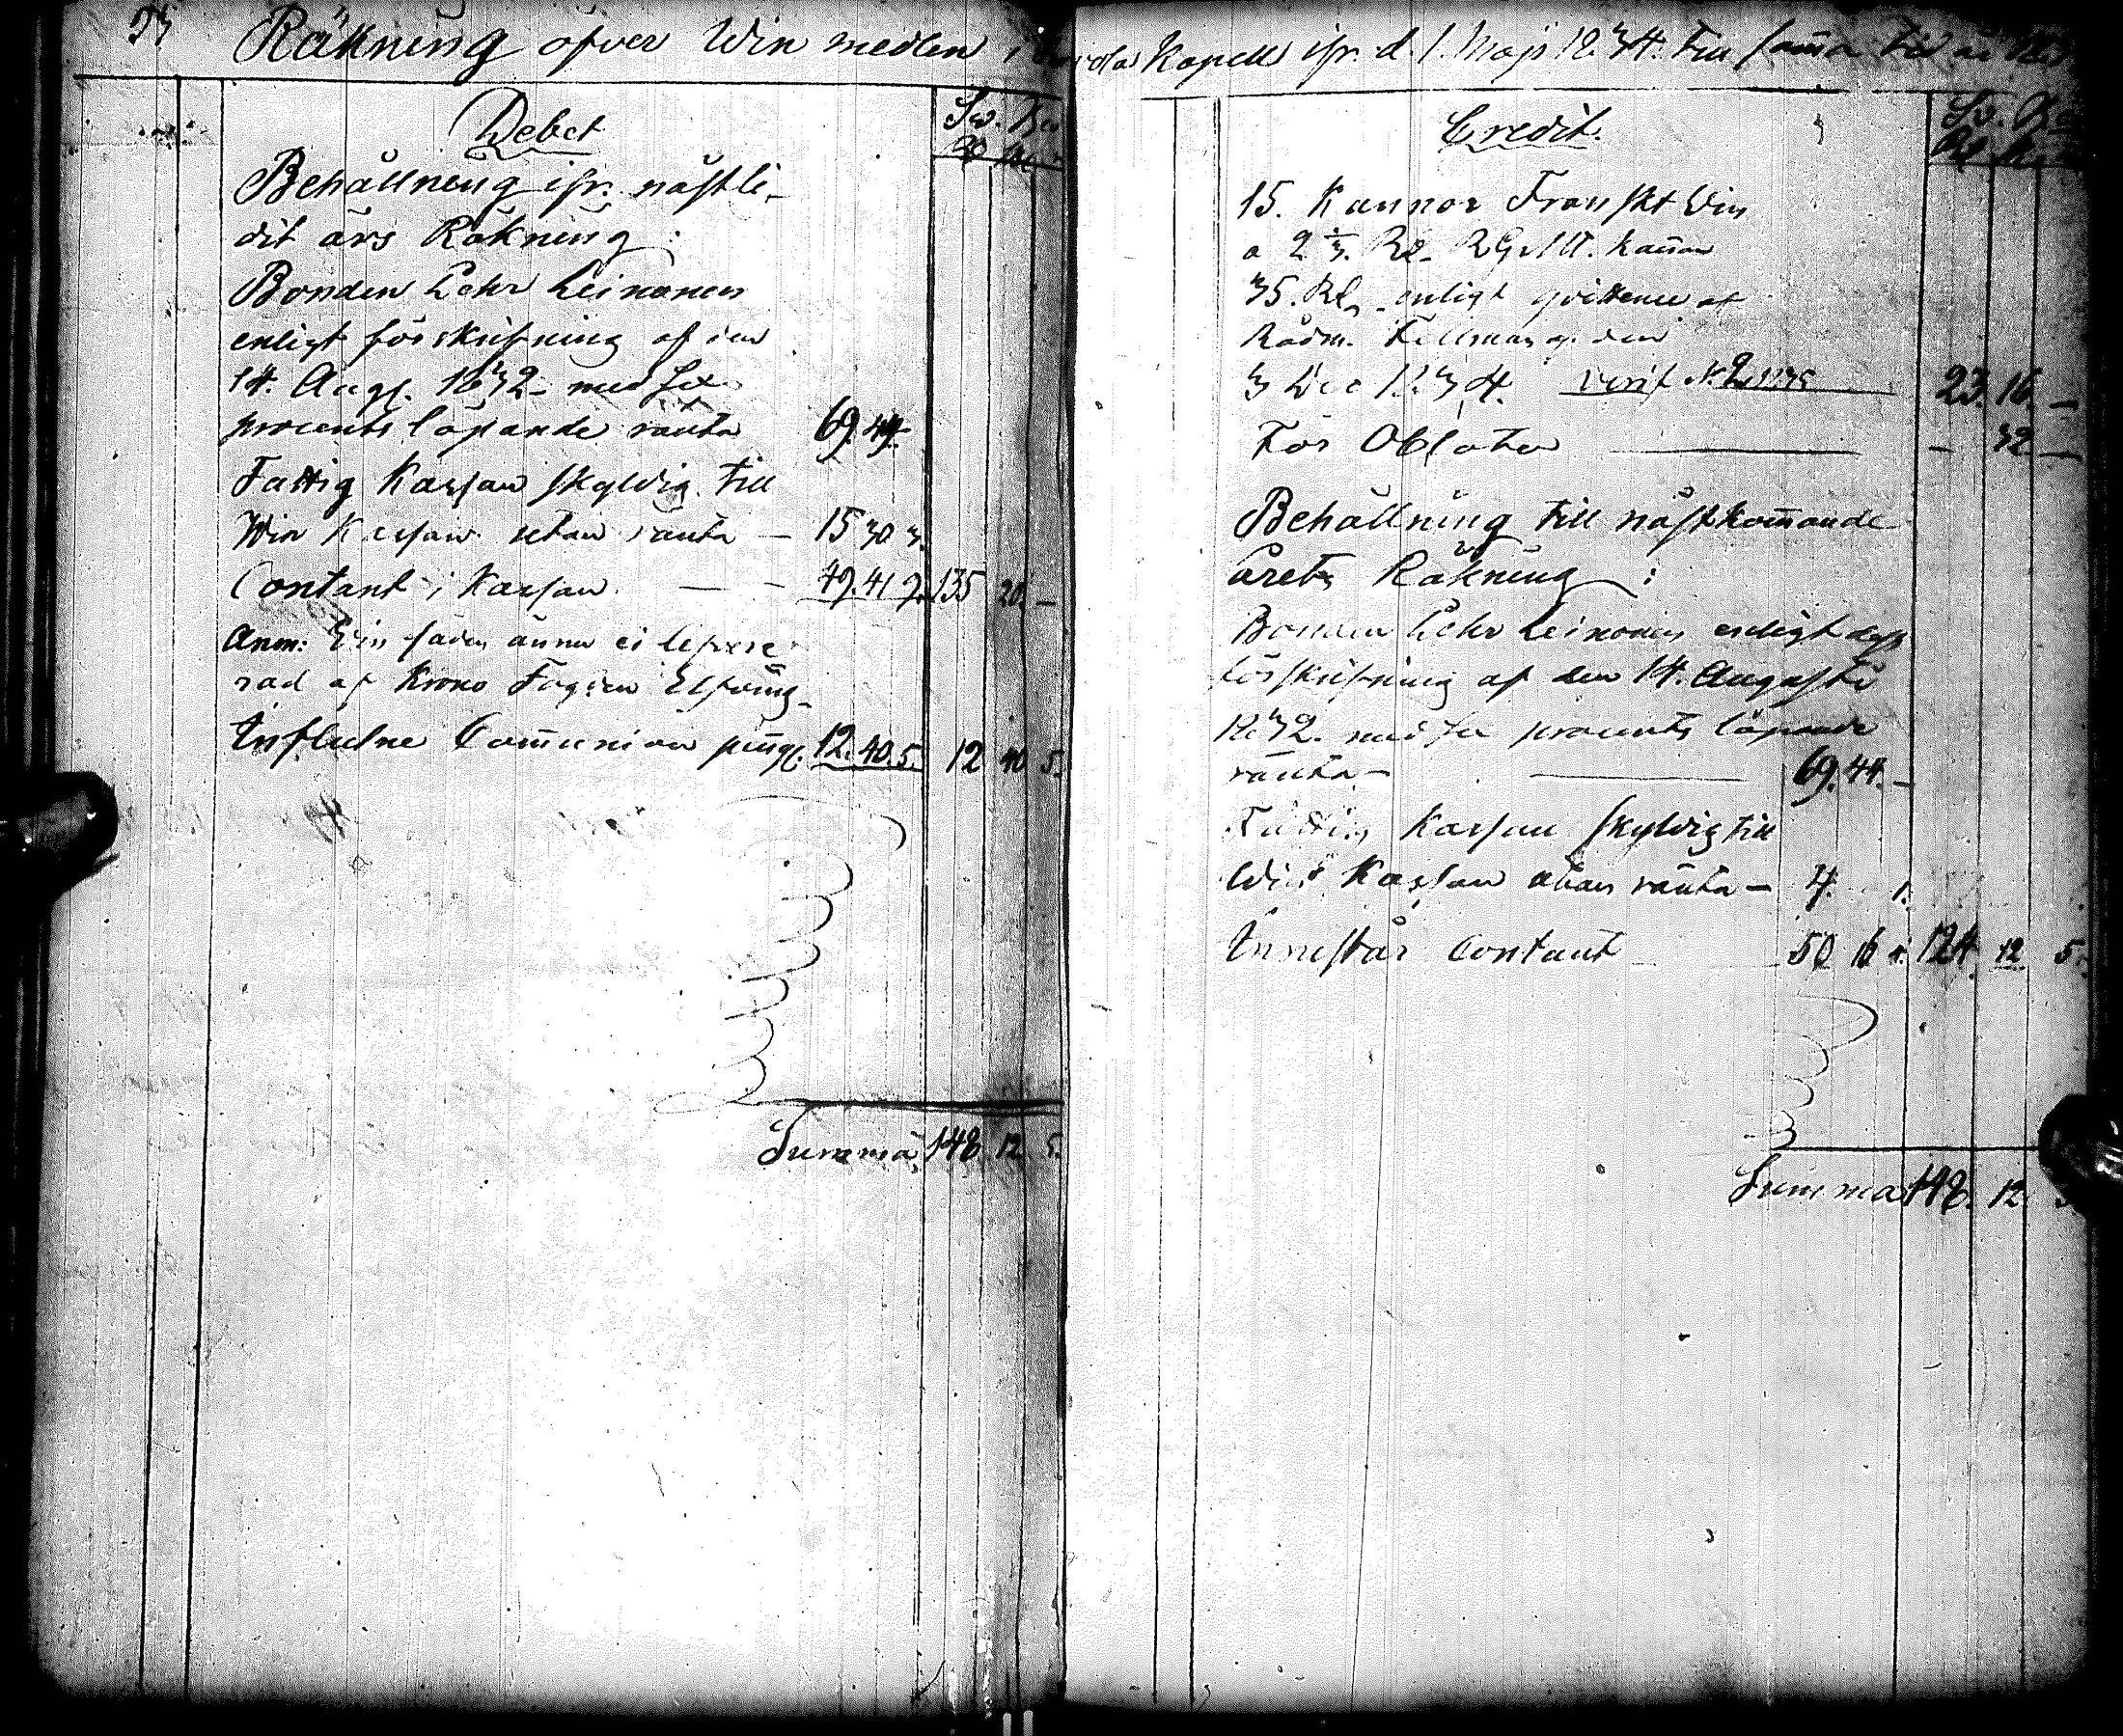 Räkning öfver Win medlen i Kapell ifr. d. 1. Maji 1834. till samma tid år
Debet
Behållning ifr. nästli-
dit års Räkning:
Bonden Pehr Leinonen
enligt förskrifning af den
14. Aug. 1832 med sex
procents löpande ränta 69. 44.
Fattig Kassan skyldig till
Win Kassan utan ränta — 15 30 3.
Contant i Kassan — — 49. 41 9. 135 20. —
Anm: Vin säden ännu ei leffere-
rad af Krono Fogden Elfving
Influtne Communion pengr. 12. 40. 5. 12 40 5.
Summa 148 12 5.
Credit.
15. Kannor Franskt Vin
a 2 1/3. Rd. RGs kannan
35. Rd. enligt qvittence af
Rådm. Fellman af den
3 Dec 1834. Verif N. 2 23. 16. —
För Oblater — — 32 —
Behållning till nästkommande
årets Räkning:
Bonden Pehr Leinonen enligt dess
förskrifning af den 14. Augusti
1832. med sex procents löpande
ränta — 69. 44. —
Fattig Kassan skyldig till
Win Kassan utan ränta — 4. 1.
Innestår Contant — 50 16 4. 124. 12 5.
Summa 148. 12